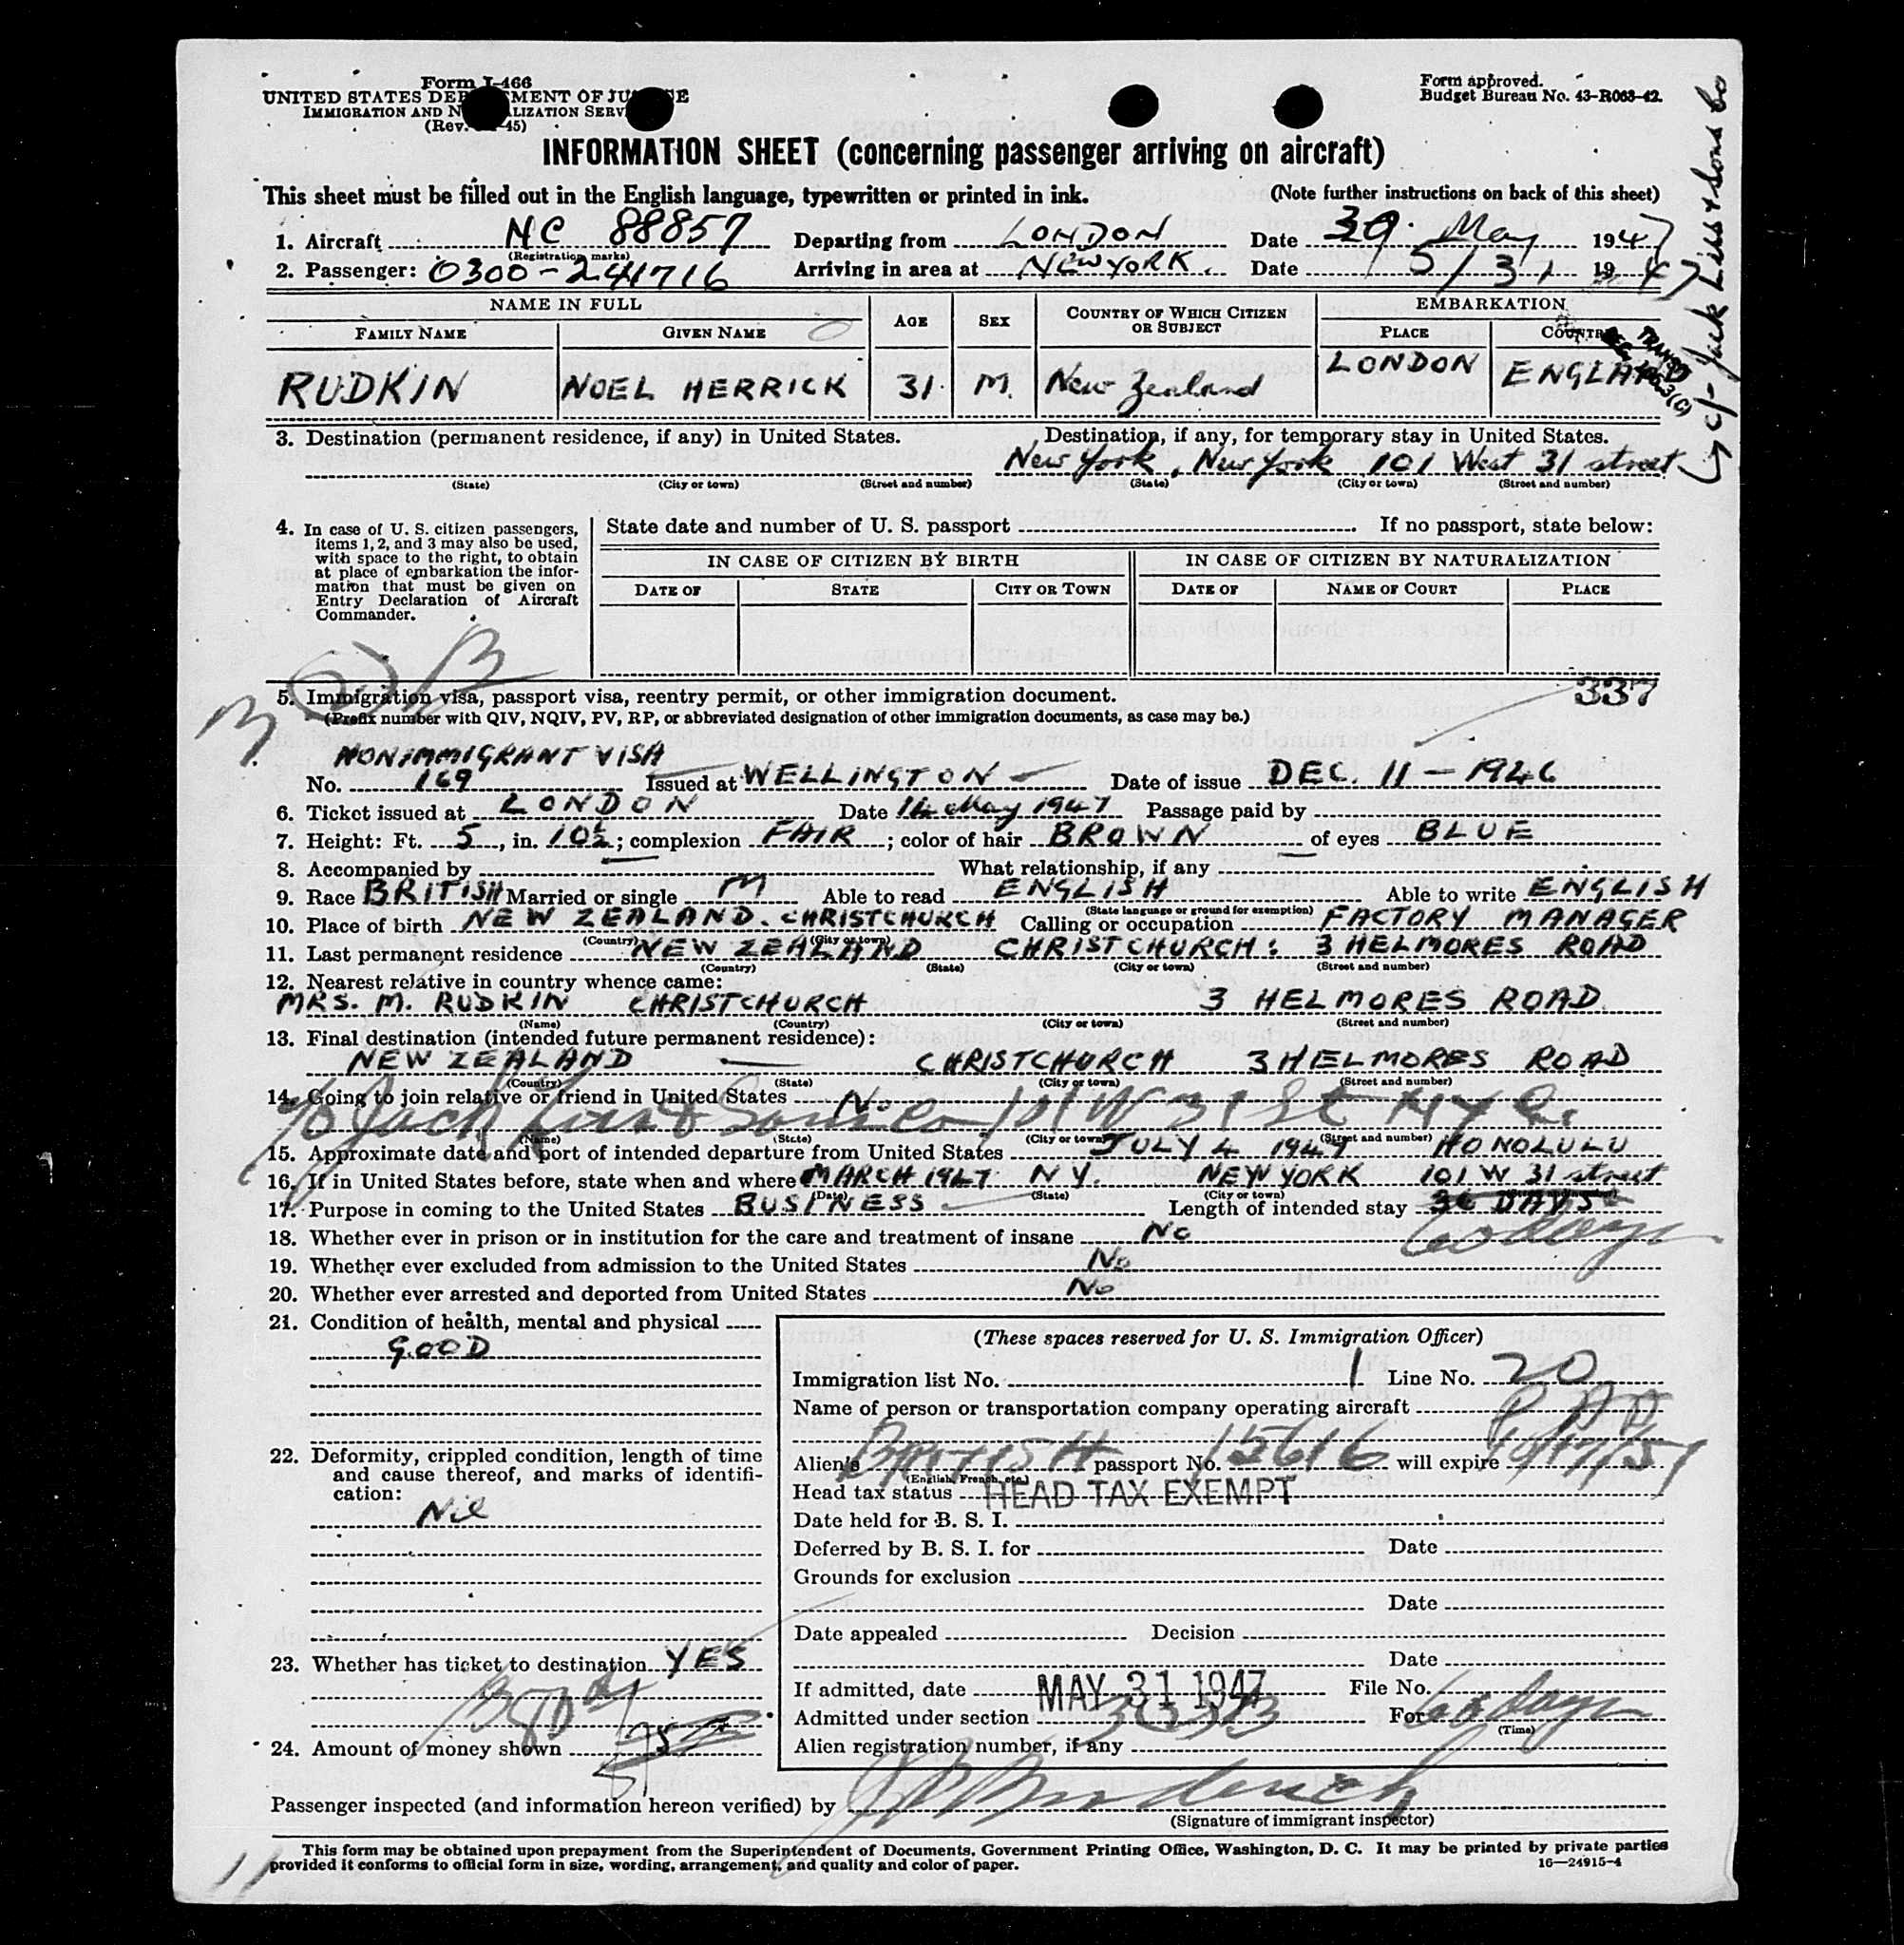 Form I-466
UNITED STATES DEPARTMENT OF JUSTICE
IMMIGRATION AND NATURALIZATION SERVICE
(Rev. -45)
Form approved.
Budget Bureau No. 43-R063-42.
INFORMATION SHEET (concerning passenger arriving on aircraft)
This sheet must be filled out in the English language, typewritten or printed in ink. (Note further instructions on back of this sheet)
1. Aircraft NC 88857 Departing from LONDON Date 30. May 1947
(Registration marks)
2. Passenger: 0300-241716 Arriving in area at NEW YORK. Date 5/31 1947
NAME IN FULL AGE SEX COUNTRY OF WHICH CITIZEN OR SUBJECT EMBARKATION
FAMILY NAME GIVEN NAME PLACE COUNTRY
RUDKIN NOEL HERRICK 31 M. New Zealand LONDON ENGLAND
3. Destination (permanent residence, if any) in United States. Destination, if any, for temporary stay in United States.
New York, New York 101 West 31 street
(State) (City or town) (Street and number) (State) (City or town) (Street and number)
4. In case of U. S. citizen passengers, items 1, 2, and 3 may also be used, with space to the right, to obtain at place of embarkation the information that must be given on Entry Declaration of Aircraft Commander.
State date and number of U. S. passport . If no passport, state below:
IN CASE OF CITIZEN BY BIRTH IN CASE OF CITIZEN BY NATURALIZATION
DATE OF STATE CITY OR TOWN DATE OF NAME OF COURT PLACE
337
5. Immigration visa, passport visa, reentry permit, or other immigration document.
(Prefix number with QIV, NQIV, PV, RP, or abbreviated designation of other immigration documents, as case may be.)
NONIMMIGRANT VISA
No. 169 Issued at WELLINGTON Date of issue DEC. 11 - 1946
6. Ticket issued at LONDON Date 14 May 1947 Passage paid by
7. Height: Ft. 5, in. 10½; complexion FAIR; color of hair BROWN of eyes BLUE
8. Accompanied by What relationship, if any
9. Race BRITISH Married or single M Able to read ENGLISH Able to write ENGLISH
(State language or ground for exemption)
10. Place of birth NEW ZEALAND. CHRISTCHURCH Calling or occupation FACTORY MANAGER
(Country) (City or town)
11. Last permanent residence NEW ZEALAND CHRISTCHURCH: 3 HELMORES ROAD
(Country) (State) (City or town) (Street and number)
12. Nearest relative in country whence came:
MRS. M. RUDKIN CHRISTCHURCH 3 HELMORES ROAD.
(Name) (Country) (City or town) (Street and number)
13. Final destination (intended future permanent residence):
NEW ZEALAND — CHRISTCHURCH 3 HELMORES ROAD
(Country) (State) (City or town) (Street and number)
14. Going to join relative or friend in United States No
101 W 31 St
(Name) (State) (City or town) (Street and number)
15. Approximate date and port of intended departure from United States JULY 4 1947 HONOLULU
16. If in United States before, state when and where MARCH 1947 N.Y. NEW YORK 101 W 31 street
(Date) (State) (City or town)
17. Purpose in coming to the United States BUSINESS Length of intended stay 36 DAYS
60 days
18. Whether ever in prison or in institution for the care and treatment of insane No
19. Whether ever excluded from admission to the United States No
20. Whether ever arrested and deported from United States No
21. Condition of health, mental and physical
GOOD
22. Deformity, crippled condition, length of time and cause thereof, and marks of identification:
Nil
23. Whether has ticket to destination YES
24. Amount of money shown
(These spaces reserved for U. S. Immigration Officer)
Immigration list No. 1 Line No. 20
Name of person or transportation company operating aircraft
Alien's BRITISH passport No. 15616 will expire 10/17/51
(English, French, etc.)
Head tax status HEAD TAX EXEMPT
Date held for B. S. I.
Deferred by B. S. I. for Date
Grounds for exclusion
Date
Date appealed Decision
Date
If admitted, date MAY 31 1947 File No.
Admitted under section For 60 days
(Time)
Alien registration number, if any
Passenger inspected (and information hereon verified) by
(Signature of immigrant inspector)
This form may be obtained upon prepayment from the Superintendent of Documents, Government Printing Office, Washington, D. C. It may be printed by private parties
provided it conforms to official form in size, wording, arrangement, and quality and color of paper. 16—24915-4